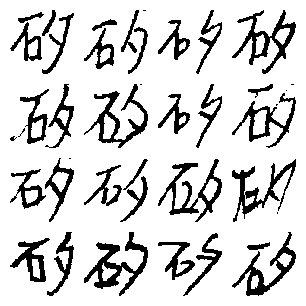 矽矽矽矽
矽矽矽矽
矽矽矽矽
矽矽矽矽